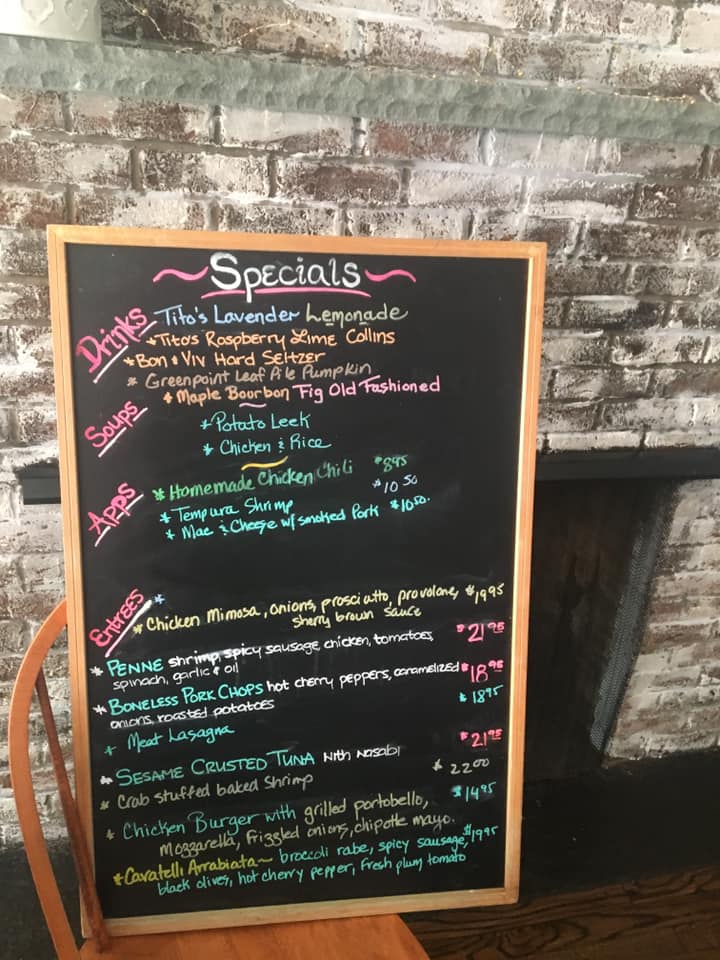 Specials
Drinks
Tito's Lavender Lemonade
*Tito's Raspberry Lime Collins
*Bon & Viv Hard Seltzer
* Greenpoint Leaf Pile Pumpkin
* Maple Bourbon Fig Old Fashioned
Soups
* Potato Leek
* Chicken & Rice
Apps
* Homemade Chicken Chili $8.95
* Tempura Shrimp $10.50
* Mac & Cheese w/ smoked Pork $10.50.
Entrees
* Chicken Mimosa, onions, prosciutto, provolone, $19.95
sherry brown sauce
* Penne shrimp, spicy sausage chicken, tomatoes, $21.95
spinach, garlic & oil
* Boneless Pork Chops hot cherry peppers, caramelized $18.95
onions, roasted potatoes
* Meat Lasagna $18.95
* Sesame Crusted Tuna with Wasabi $21.95
* Crab stuffed baked shrimp $22.00
* Chicken Burger with grilled portobello, $14.95
mozzarella, frizzled onions, chipotle mayo.
*Cavatelli Arrabiata~ broccoli rabe, spicy sausage, $19.95
black olives, hot cherry pepper, fresh plum tomato